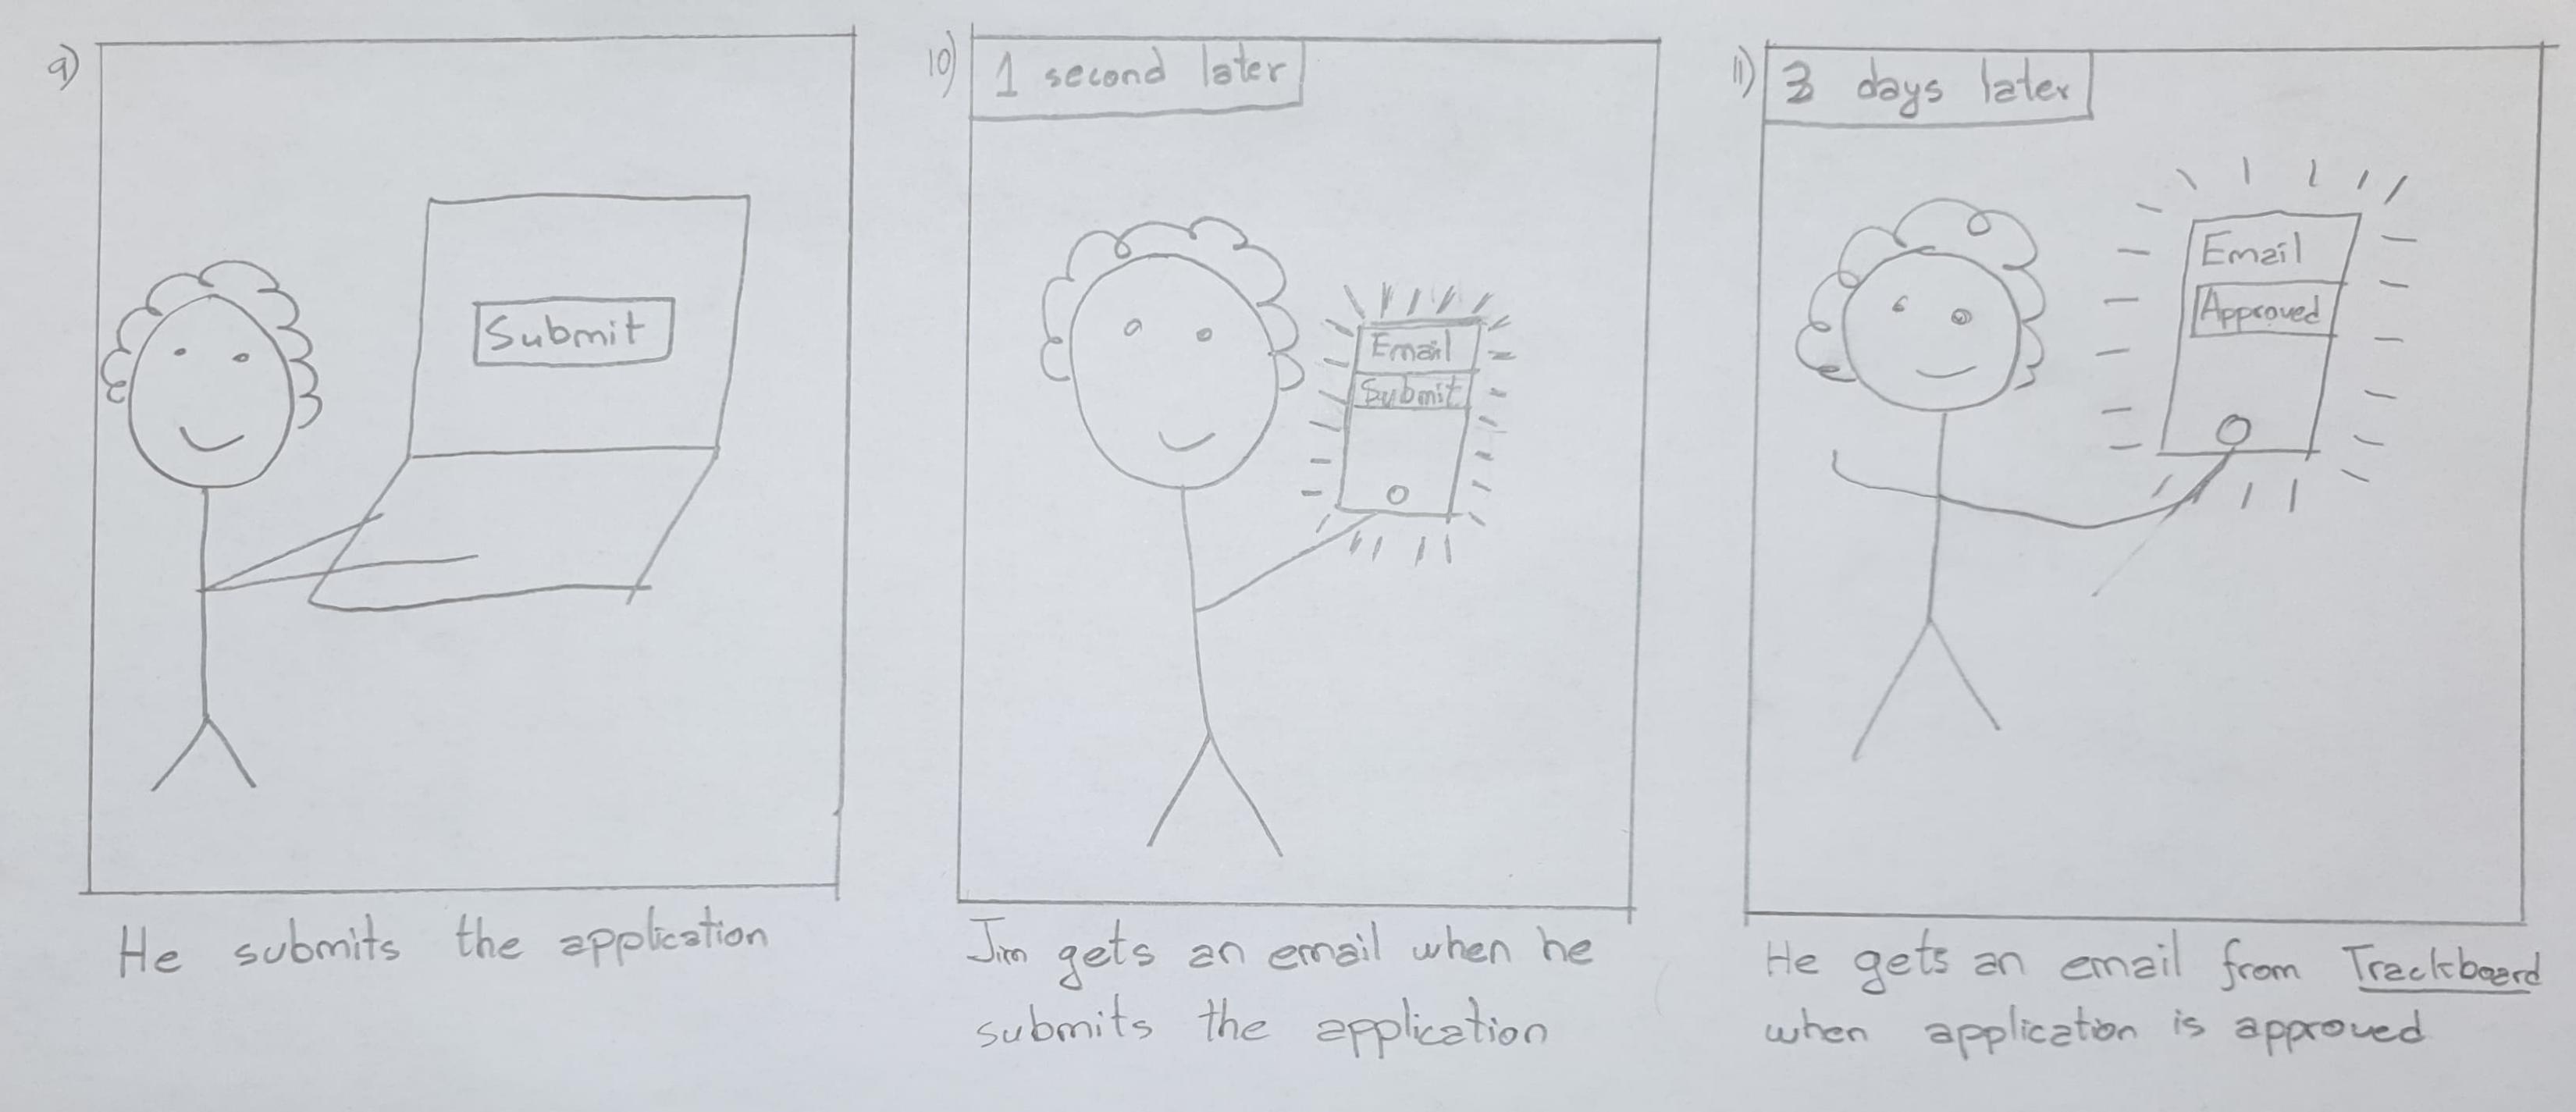 9)
Submit
He submits the application
10)
1 second later
Email
Submit
Jim gets an email when he
submits the application
11)
3 days later
Email
Approved
He gets an email from Trackboard
when application is approved